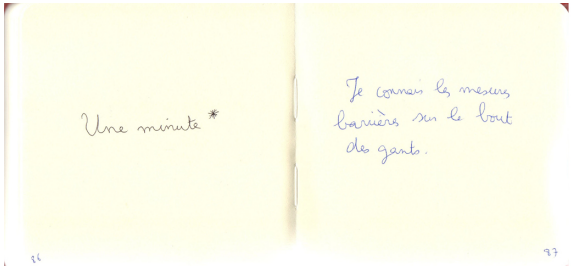 Une minute *
Je connais les mesures
barrières sur le bout
des gants.
86
87